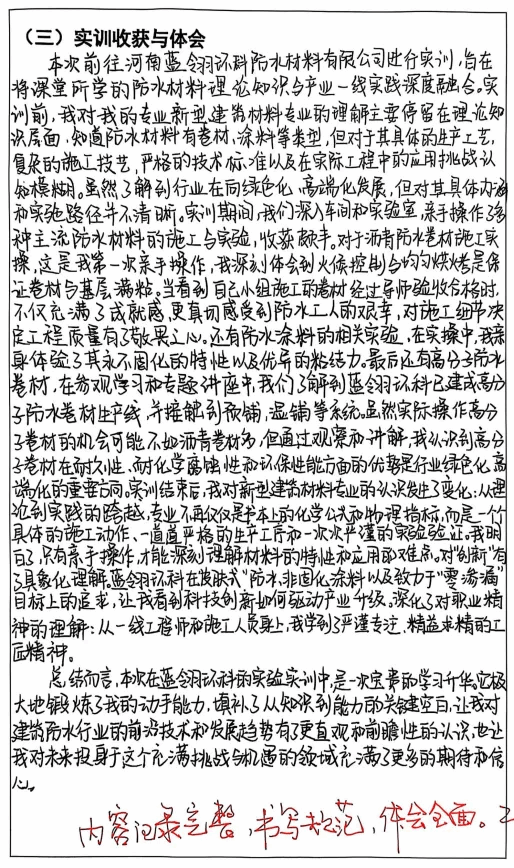 （三）实训收获与体会
本次前往河南蓝翎环科防水材料有限公司进行实训，旨在
将课堂所学的防水材料理论知识与产业一线实践深度融合。实
训前，我对我的专业新型建筑材料专业的理解主要停留在理论知
识层面，知道防水材料有卷材、涂料等类型，但对于其具体的生产工艺，
复杂的施工技艺，严格的技术标准以及在实际工程中的应用挑战认
知模糊。虽然了解到行业在向绿色化、高端化发展，但对其具体内涵
和实施路径并不清晰。实训期间，我们深入车间和实验室，亲手操作了多
种主流防水材料的施工与实验，收获颇丰。对于沥青防水卷材施工实
操，这是我第一次亲手操作，我深刻体会到火候控制与均匀烘烤是保
证卷材与基层满粘。当看到自己小组施工的卷材经过导师验收合格时，
不仅充满了成就感，更真切感受到防水工人的艰辛，对施工细节决
定工程质量有了敬畏之心。还有防水涂料的相关实验，在实操中，我亲
身体验了其永不固化的特性以及优异的粘结力。最后还有高分子防水
卷材，在参观学习和专题讲座中，我们了解到蓝翎环科已建成高分
子防水卷材生产线，并接触到预铺、湿铺等系统。虽然实际操作高分
子卷材的机会可能不如沥青卷材多，但通过观察和讲解，我认识到高分
子卷材在耐久性、耐化学腐蚀性和环保性能方面的优势是行业绿色化、高
端化的重要方向。实训结束后，我对新型建筑材料专业的认识发生了变化：从理
论到实践的跨越，专业不再仅仅是书本上的化学公式和物理指标，而是一个个
具体的施工动作、一道道严格的生产工序和一次次严谨的实验验证。我明
白了，只有亲手操作，才能深刻理解材料的特性和应用的难点。对“创新”有
了具象化理解，蓝翎环科在皮肤式”防水，非固化涂料以及致力于“零渗漏”
目标上的追求，让我看到科技创新如何驱动产业升级。深化了对职业精
神的理解：从一线工程师和施工人员身上，我学到了严谨专注、精益求精的工
匠精神。
总结而言，本次在蓝翎环科的实验实训中，是一次宝贵的学习升华。它极
大地锻炼了我的动手能力，填补了从知识到能力的关键空白，让我对
建筑防水行业的前沿技术和发展趋势有了更直观和前瞻性的认识，也让
我对未来投身于这个充满挑战与机遇的领域充满了更多的期待和信
心。
内容记录完整，书写规范，体会全面。